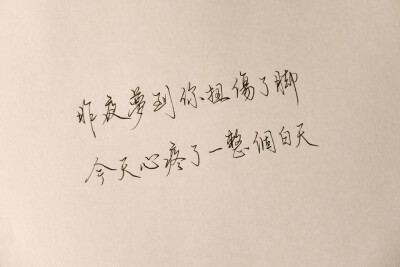 昨夜夢到你扭傷了脚
今天心疼了一整個白天